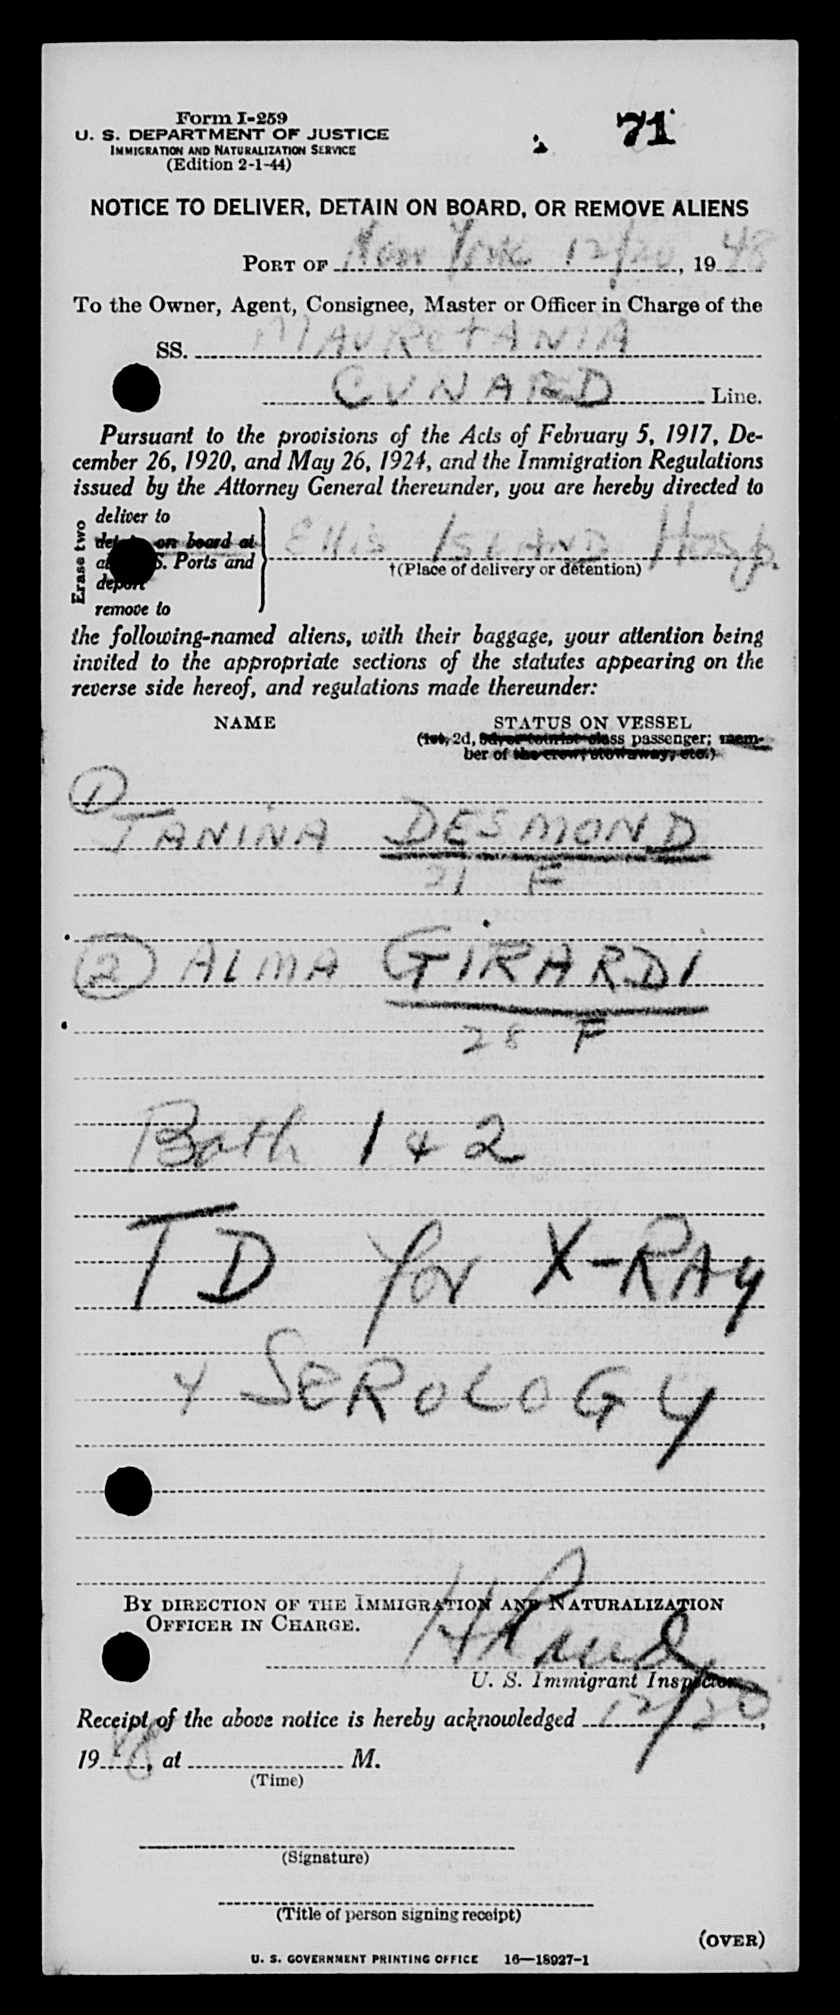 Form I-259
U. S. DEPARTMENT OF JUSTICE
IMMIGRATION AND NATURALIZATION SERVICE
(Edition 2-1-44)
71
NOTICE TO DELIVER, DETAIN ON BOARD, OR REMOVE ALIENS
PORT OF New York 12/20, 1948
To the Owner, Agent, Consignee, Master or Officer in Charge of the
SS. MAURETANIA
CUNARD Line.
Pursuant to the provisions of the Acts of February 5, 1917, De-
cember 26, 1920, and May 26, 1924, and the Immigration Regulations
issued by the Attorney General thereunder, you are hereby directed to
Erase two
deliver to
on board at
Ports and
deport
remove to
Ellis ISLAND Hosp
†(Place of delivery or detention)
the following-named aliens, with their baggage, your attention being
invited to the appropriate sections of the statutes appearing on the
reverse side hereof, and regulations made thereunder:
NAME STATUS ON VESSEL
(1st, 2d, 3d, or tourist class passenger; mem-
ber of the crew, stowaway, etc.)
1
TANINA DESMOND
21 F
2 ALMA GIRARDI
28 F
Both 1 & 2
TD for X-RAy
& SEROLOGY
BY DIRECTION OF THE IMMIGRATION AND NATURALIZATION
OFFICER IN CHARGE.
U. S. Immigrant Inspector.
Receipt of the above notice is hereby acknowledged 12/20,
1948, at M.
(Time)
(Signature)
(Title of person signing receipt)
(OVER)
U. S. GOVERNMENT PRINTING OFFICE 16—18927-1